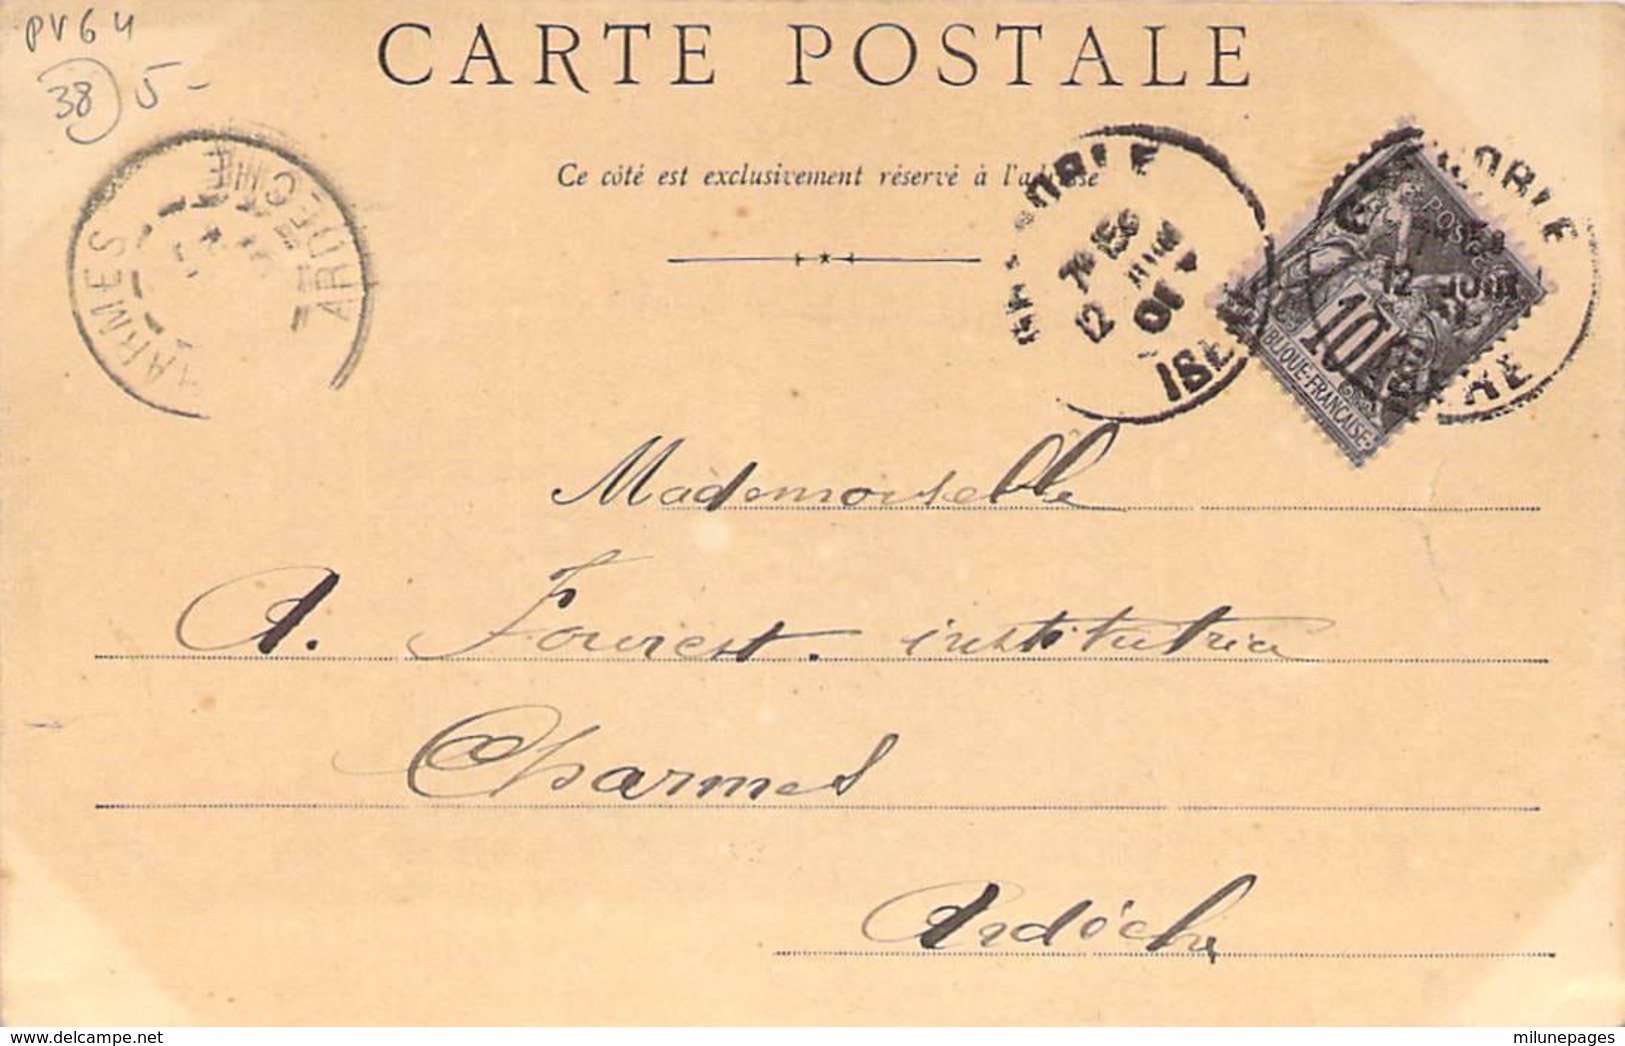 PV64
38 5-
CARTE POSTALE
Ce côté est exclusivement réservé à l'adresse
ARMES
ARDECHE
OBLE
7E 15E
12 JUIN
01
ISE
OBLE
12 JUIN
POSTES
10
BLIQUE-FRANÇAISE
Mademoiselle
A. Fourest. institutrice
Charmes
Ardèche
delcampe.net
milunepages